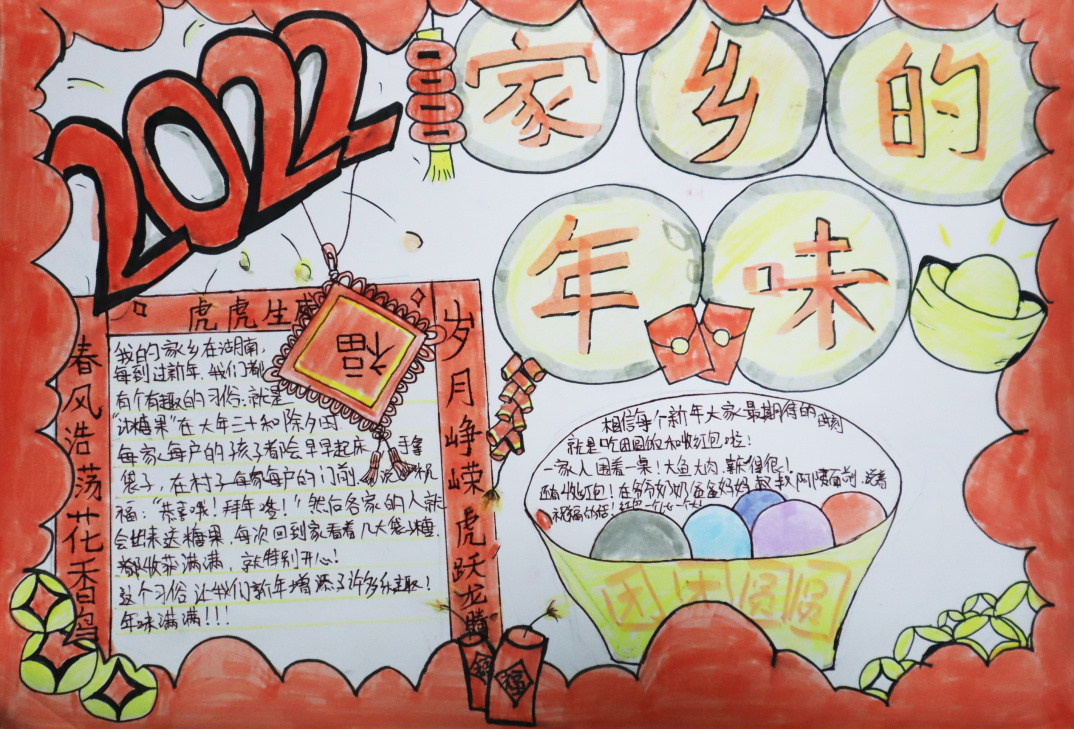 2022
家乡的
年味
虎虎生
福
春风浩荡花香鸟
岁月峥嵘虎跃龙腾
我的家乡在湖南，
每到过新年，我们都
有个有趣的习俗，就是
“讨糖果”在大年三十和除夕
每家每户的孩子都会早早起床，手拿
袋子，在村子每家每户的门前
福：“恭喜哦！拜年咯！”然后各家的人就
会出来送糖果，每次回到家看着几大袋糖，
都收获满满，就特别开心！
这个习俗让我们新年增添了许多乐趣！
年味满满！！！
相信每个新年大家最期待的时刻
就是吃团圆饭和收红包啦！
一家人围着一桌！大鱼大肉，
还有收红包！在爷爷奶奶爸爸妈妈叔叔阿姨面前，说着
祝福的话！红包一个个
团团圆圆
福